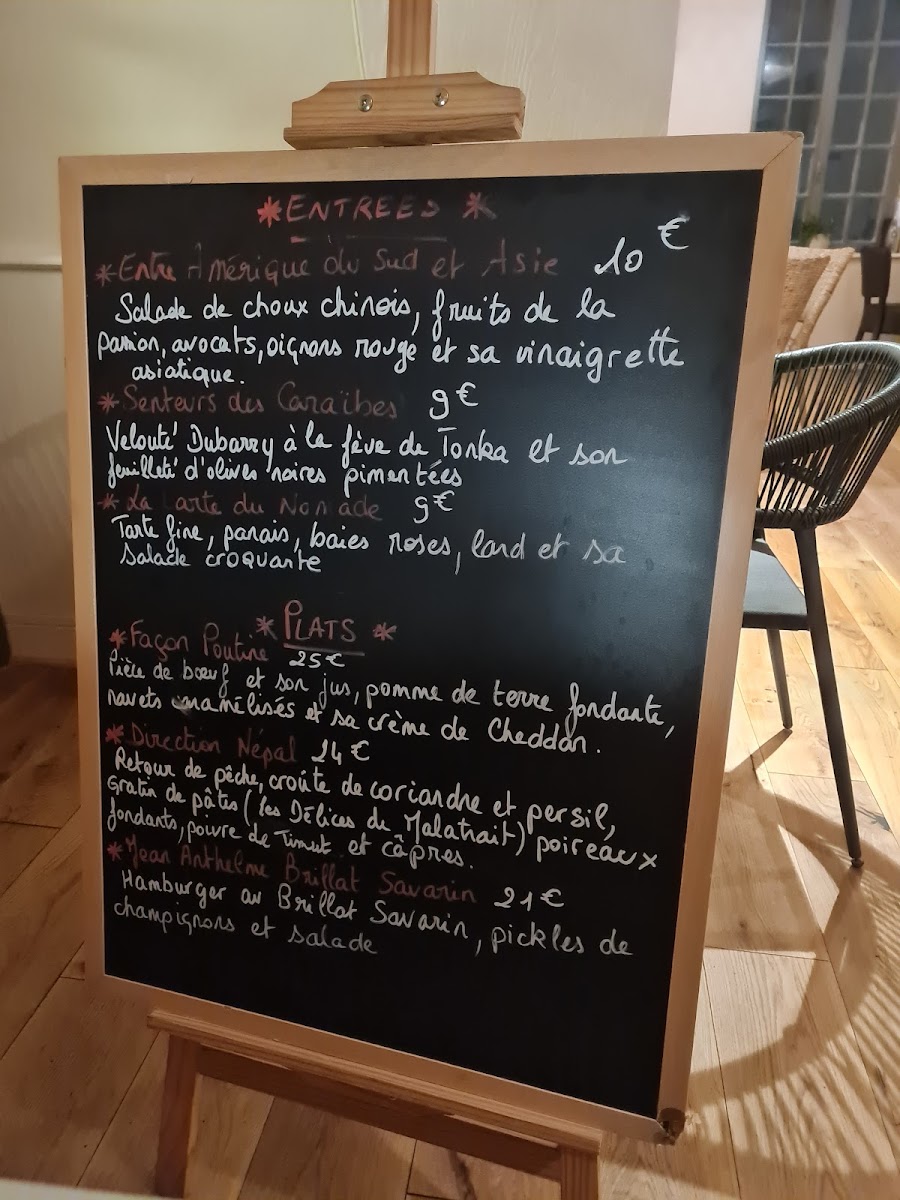 * ENTREES *
* Entre Amérique du Sud et Asie 10 €
Salade de choux chinois, fruits de la
passion, avocats, oignons rouge et sa vinaigrette
asiatique.
* Senteurs des Caraïbes 9€
Velouté Dubarry à la fève de Tonka et son
feuilleté d'olives noires pimentées
* La carte du Nomade 9€
Tarte fine, panais, baies roses, lard et sa
salade croquante
* PLATS *
* Façon Poutine 25€
Pièce de bœuf et son jus, pomme de terre fondante,
navets caramélisés et sa crème de Cheddar.
* Direction Népal 24€
Retour de pêche, croûte de coriandre et persil,
Gratin de pâtes (les Délices de Malatrait) poireaux
fondants, poivre de Timut et câpres.
* Jean Anthelme Brillat Savarin 21€
Hamburger au Brillat Savarin, pickles de
champignons et salade